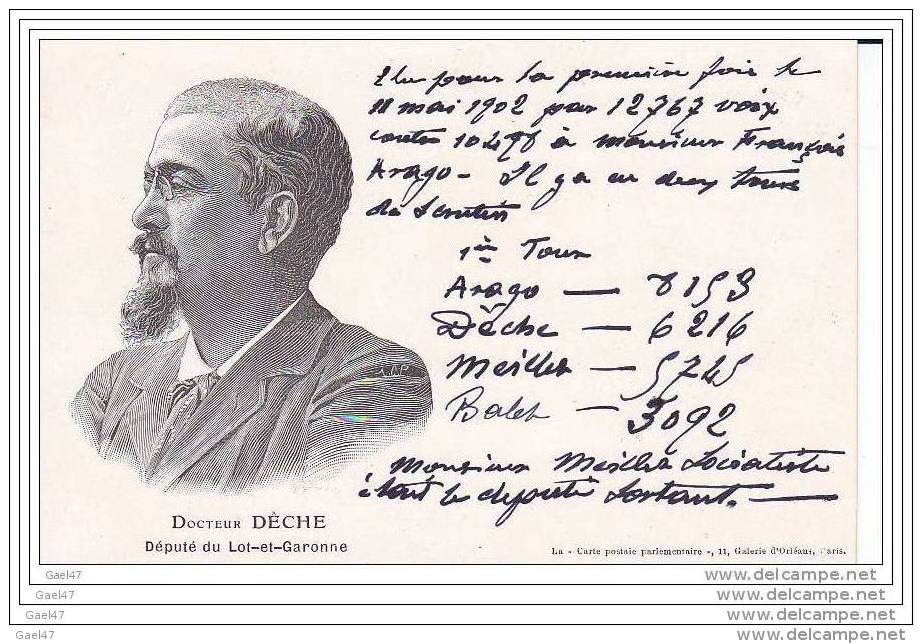 Elu pour la première fois le
11 mai 1902 par 12767 voix
contre 10476 à monsieur François
Arago - Il y a eu deux tours
de scrutin
1er Tour
Arago — 8153
Dêche — 6216
Meillet — 5745
Balet — 3092
Monsieur Meillet Socialiste
était le député Sortant. —
L.C.P.
DOCTEUR DÊCHE
Député du Lot-et-Garonne
La « Carte postale parlementaire », 11, Galerie d'Orléans, Paris.
Gael47 www.delcampe.net
Gael47 www.delcampe.net
Gael47 www.delcampe.net
Gael47 www.delcampe.net